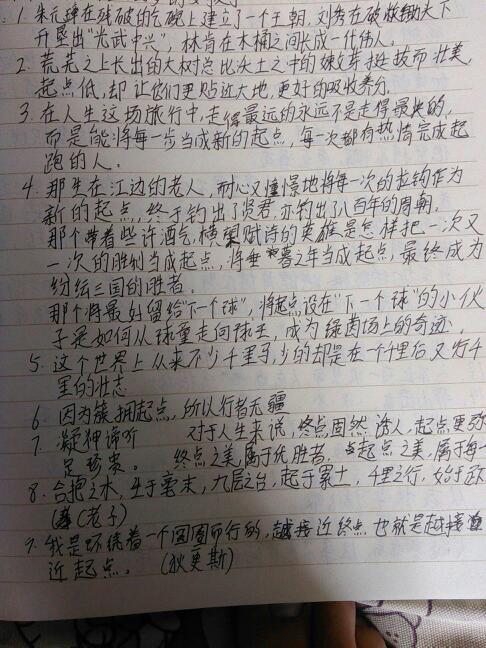 1. 朱元璋在残破的乞碗上建立了一个王朝,刘秀在破败锄头下
开垦出"光武中兴",林肯在木桶之间长成一代伟人。
2. 荒芜之上长出的大树总比沃土之中的嫩芽挺拔而壮美,
起点低,却让它们更贴近大地,更好的吸收养分
3. 在人生这场旅行中,走得最远的永远不是走得最快的,
而是能将每一步当成新的起点,每一次都有热情完成起
跑的人。
4. 那坐在江边的老人,耐心又憧憬地将每一次的拉钩作为
新的起点,终于钓出了贤君,亦钓出了八百年的周朝。
那个带着些许酒气,横槊赋诗的英雄是怎样把一次又
一次的胜利当成起点,将垂暮之年当成起点,最终成为
纷纭三国的胜者。
那个将最好留给"下一个球",将起点设在"下一个球"的小伙
子是如何从球童走向球王,成为绿茵场上的奇迹,
5. 这个世界上从来不少千里马,少的却是在一个千里后又行千
里的壮志
6. 因为簇拥起点,所以行者无疆
7. 凝神谛听 对于人生来说,终点固然诱人,起点更弥
足珍贵。 终点之美,属于优胜者,起点之美,属于每一
8. 合抱之木,生于毫末,九层之台,起于累土,千里之行,始于足
(老子)
9. 我是环绕着一个圆圈而行的,越接近终点也就是越接
近起点。 (狄更斯)